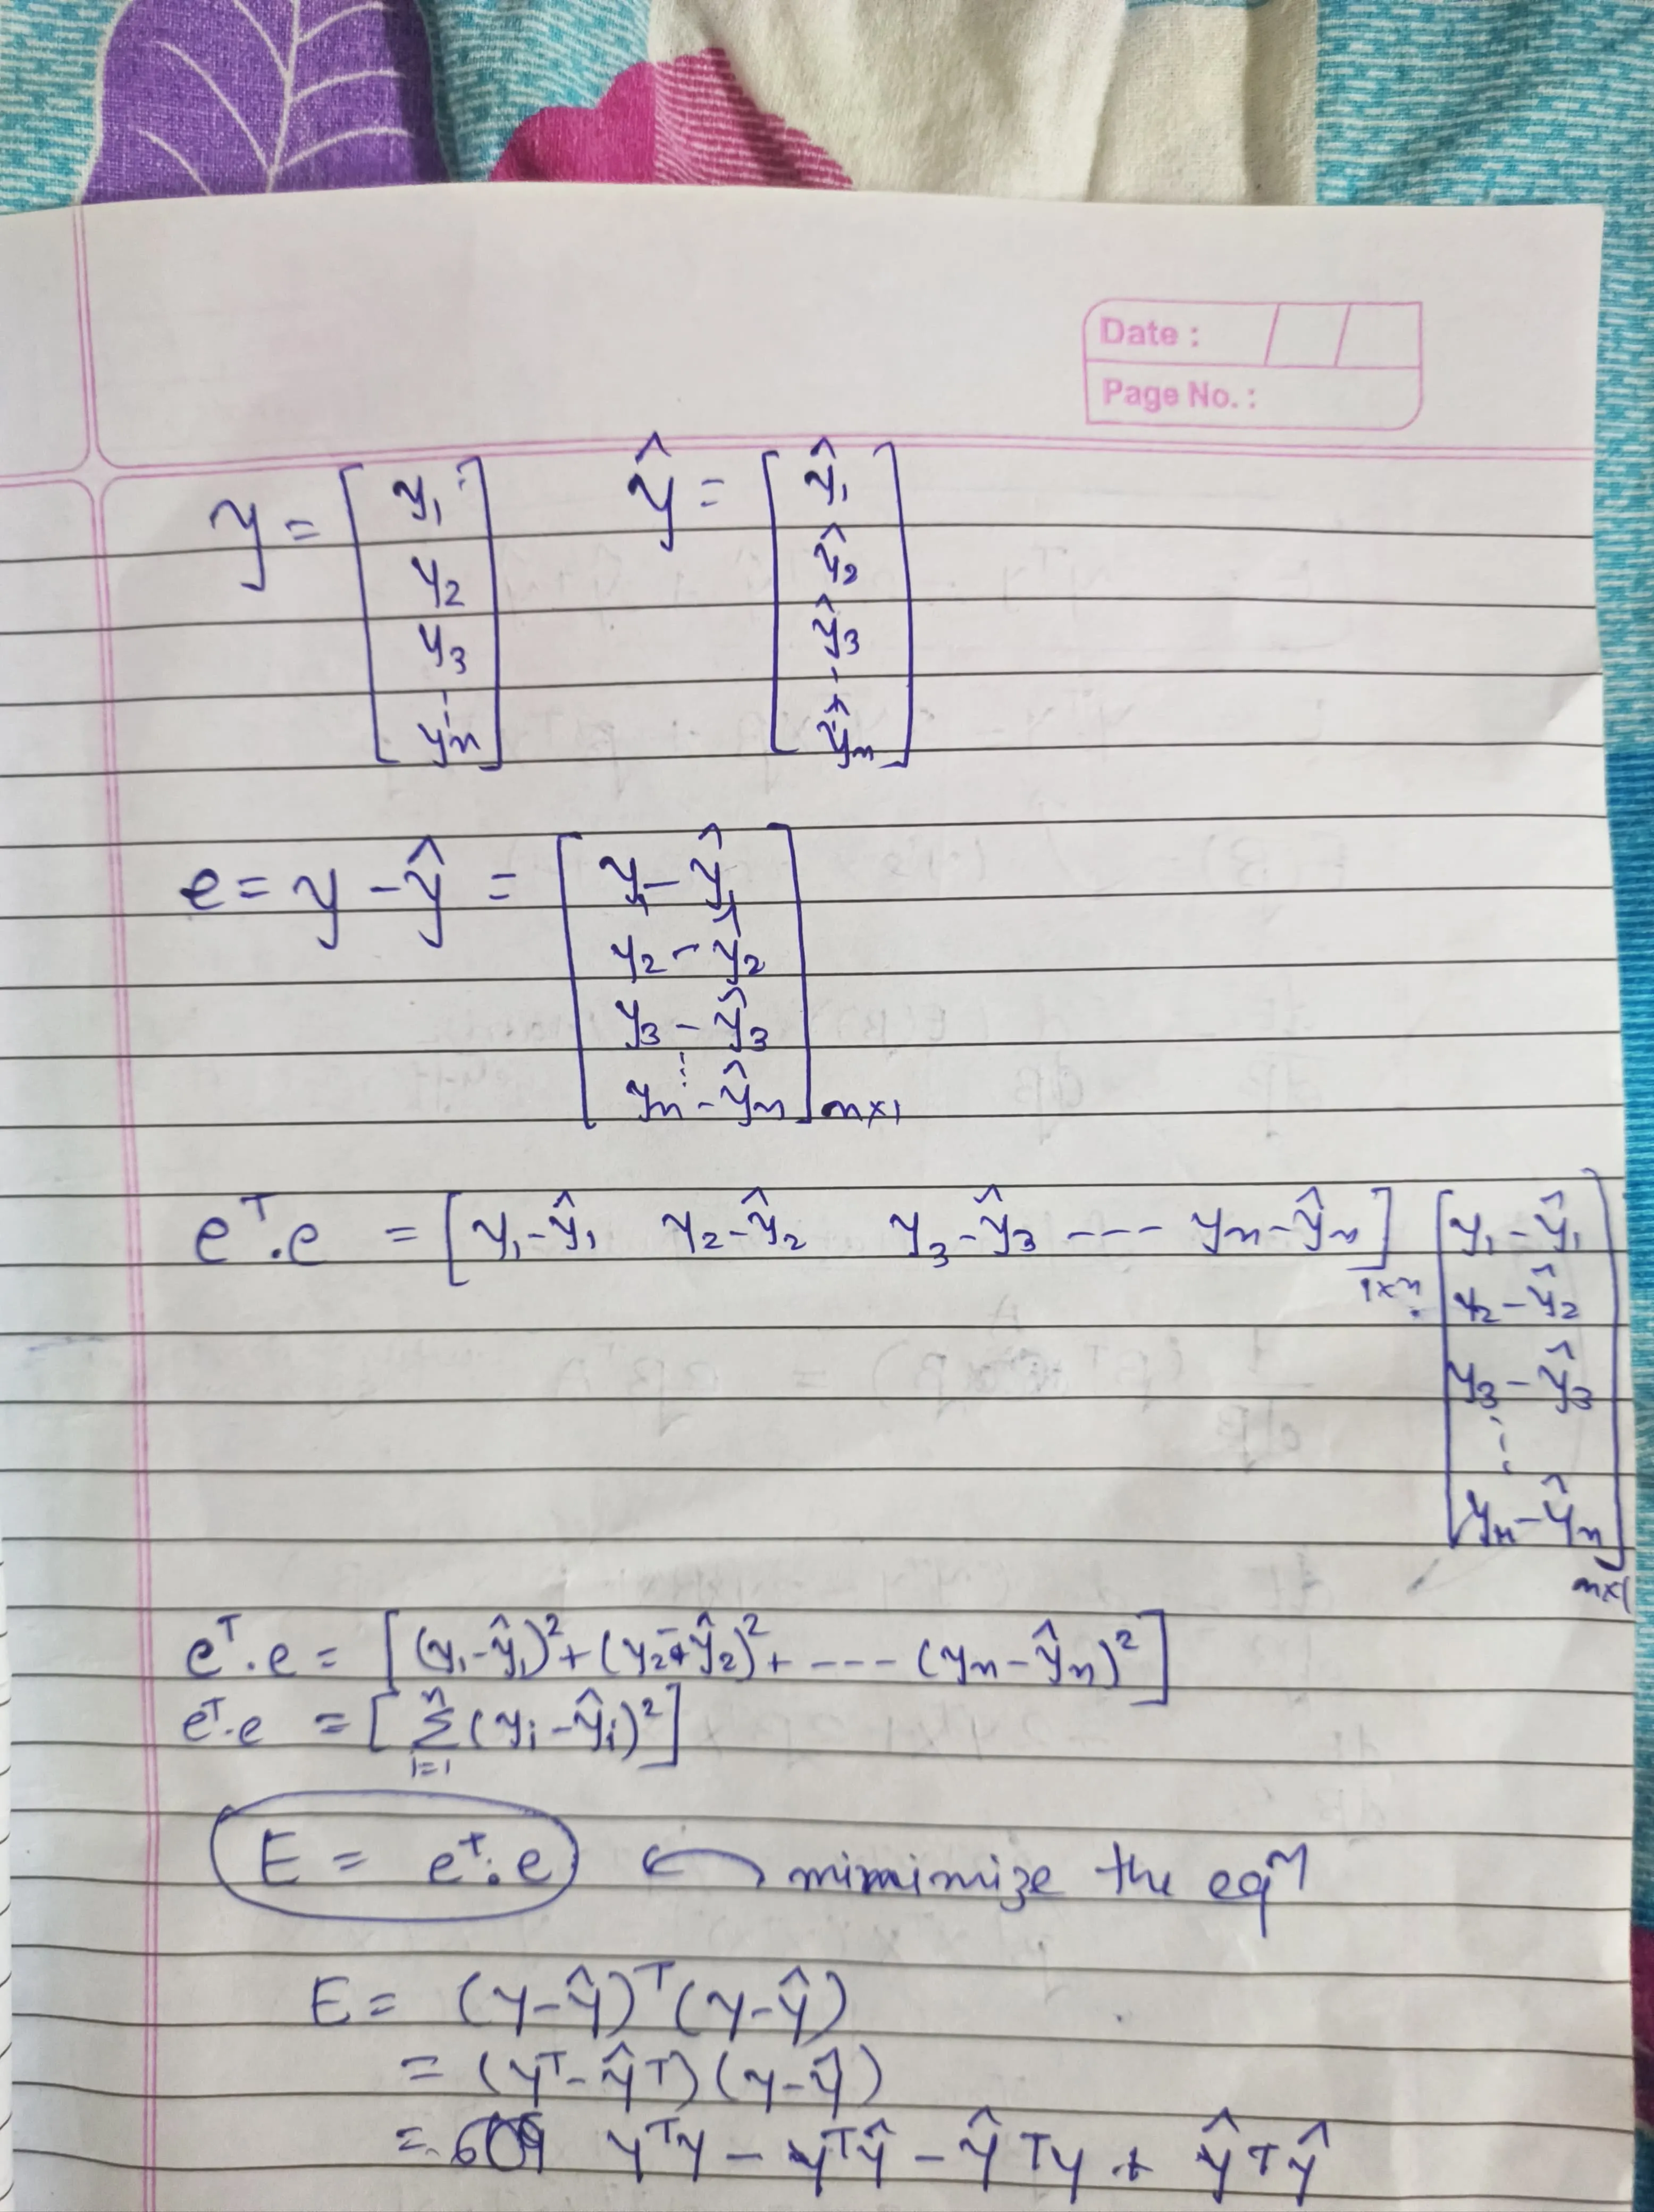 Date :
Page No. :
y = [ y₁ y₂ y₃ ⋮ yₙ ]    ŷ = [ ŷ₁ ŷ₂ ŷ₃ ⋮ ŷₙ ]
e = y - ŷ = [ y₁ - ŷ₁
y₂ - ŷ₂
y₃ - ŷ₃
⋮
yₙ - ŷₙ ] n×1
eᵀ.e = [ y₁-ŷ₁  y₂-ŷ₂  y₃-ŷ₃ ---- yₙ-ŷₙ ] 1×n [ y₁-ŷ₁
y₂-ŷ₂
y₃-ŷ₃
⋮
yₙ-ŷₙ ] n×1
eᵀ.e = [ (y₁-ŷ₁)² + (y₂-ŷ₂)² + ---- (yₙ-ŷₙ)² ]
eᵀ.e = [ Σ i=1 n (yᵢ-ŷᵢ)² ]
E = eᵀ.e ← mimimize the eqⁿ
E = (y-ŷ)ᵀ(y-ŷ)
= (yᵀ-ŷᵀ)(y-ŷ)
= yᵀy - yᵀŷ - ŷᵀy + ŷᵀŷ